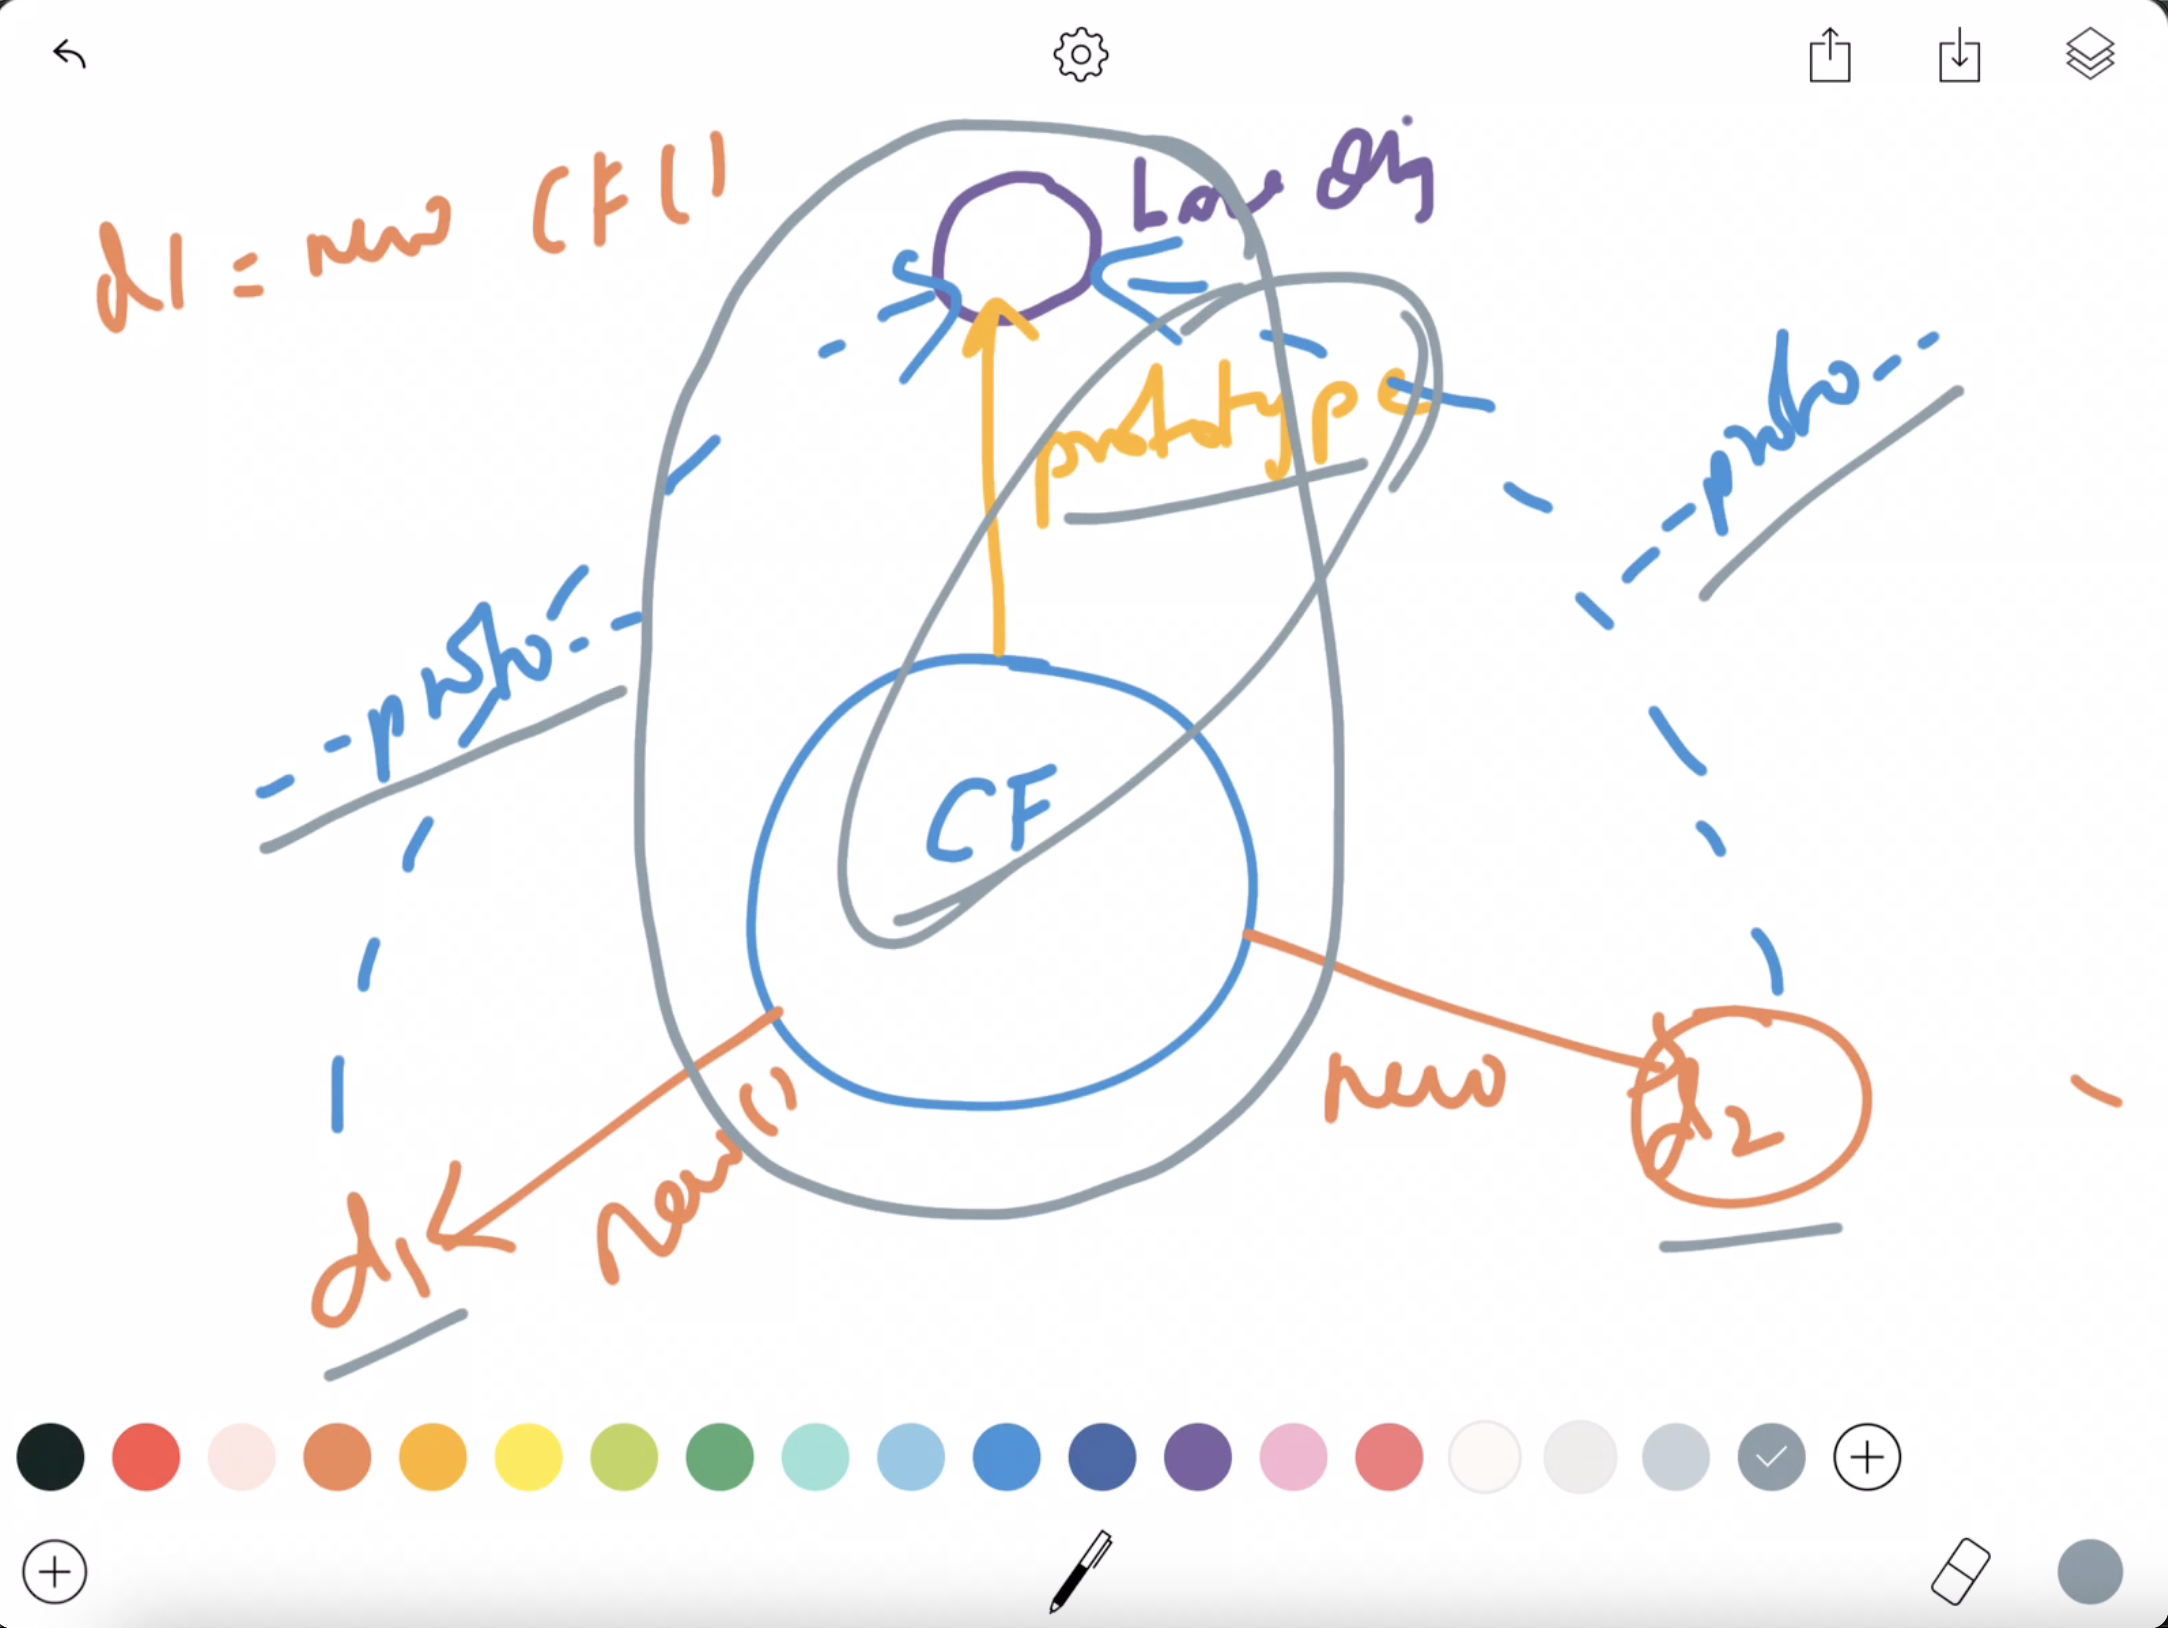 d1 = new CF()
Obj
prototype
--proto--
--proto--
CF
new
new()
d1
d2